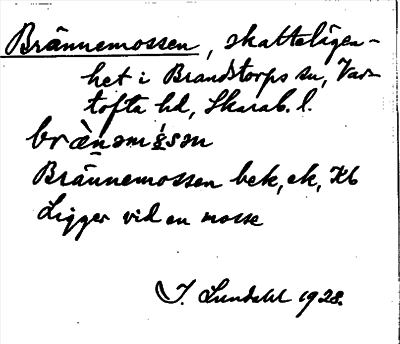 Brännemossen, skattelägen-
het i Brandstorps sn, Var-
tofta hd, Skarab. l.
brànəmɷ́sən
Brännemossen bek, ek, Kb
Ligger vid en mosse
I. Lundahl 1928.